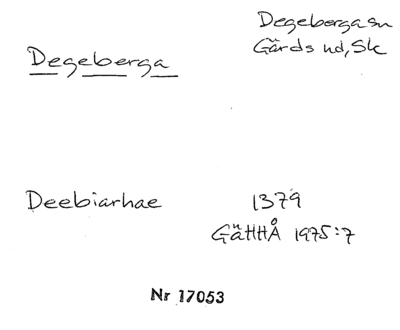 Degeberga
Degeberga sn
Gärds hd, Sk
Deebiarhae
1379
GäHHÅ 1975:7
Nr 17053